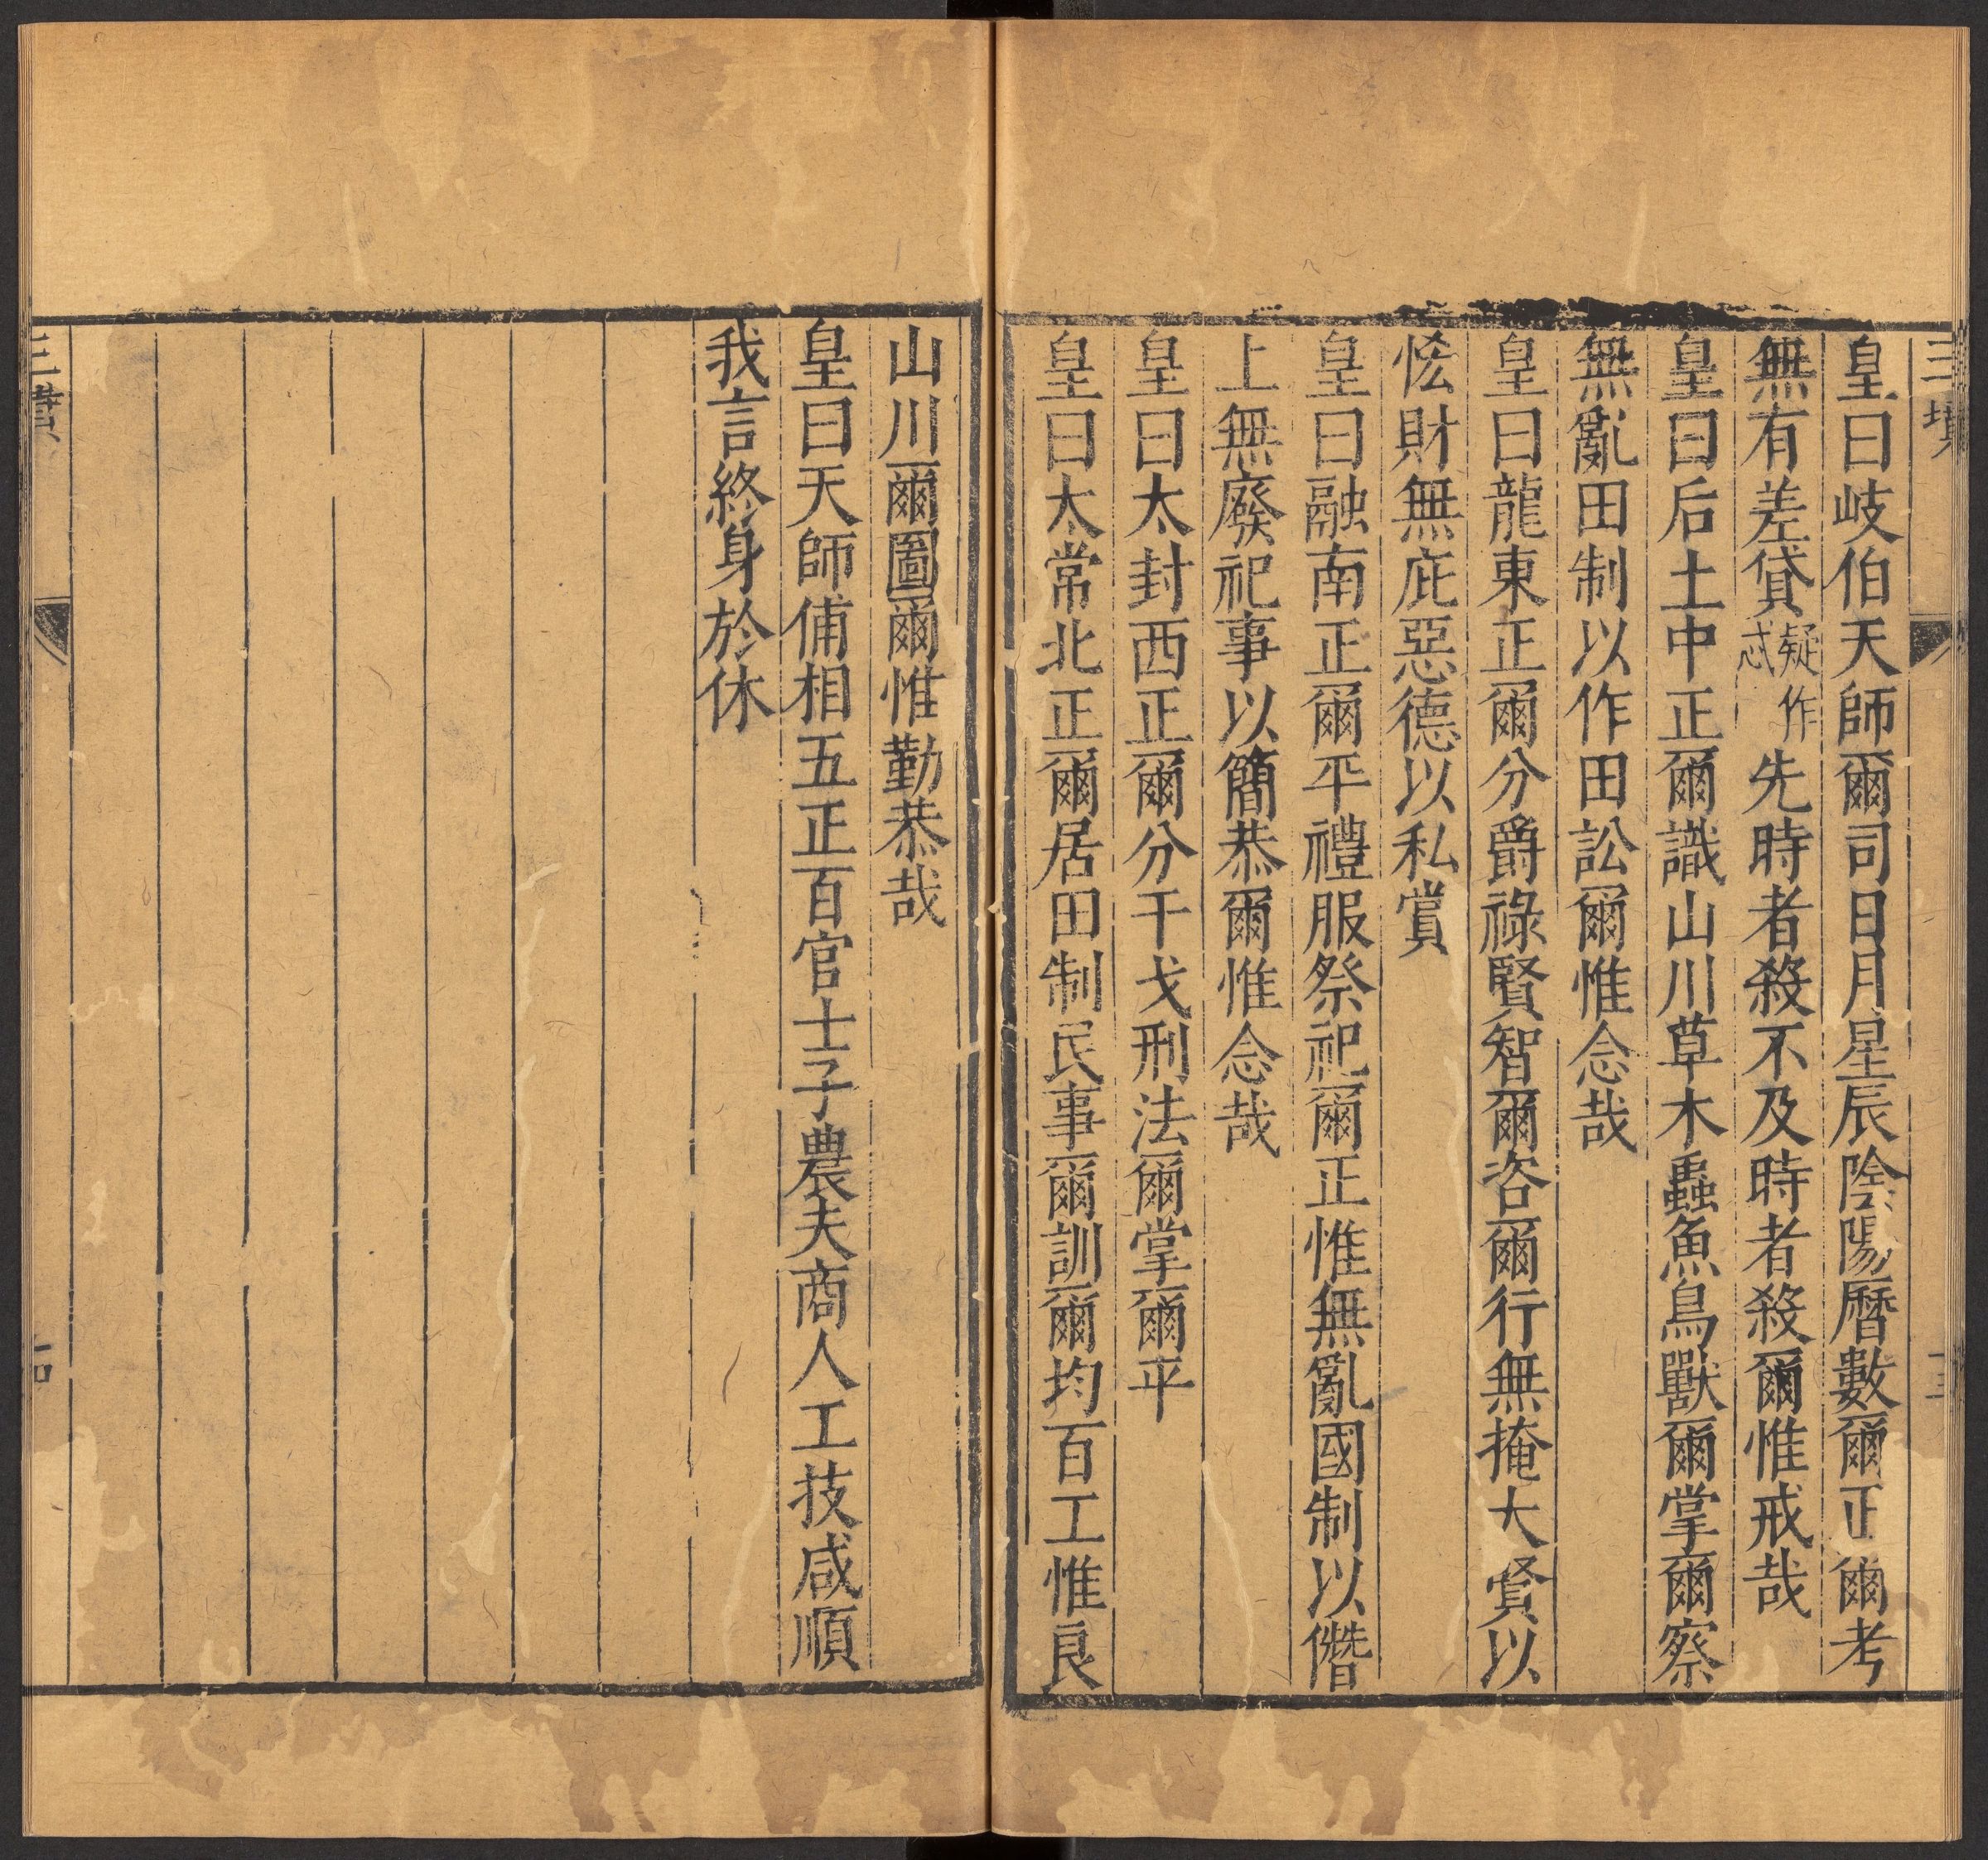 三墳
皇曰岐伯天師爾司日月星辰陰陽曆數爾正爾考
無有差貸疑作忒先時者殺不及時者殺爾惟戒哉
皇曰后土中正爾識山川草木蟲魚鳥獸爾掌爾察
無亂田制以作田訟爾惟念哉
皇曰龍東正爾分爵祿賢智爾咨爾行無掩大賢以
恡財無庇惡德以私賞
皇曰融南正爾平禮服祭祀爾正惟無亂國制以僭
上無廢祀事以簡恭爾惟念哉
皇曰太封西正爾分干戈刑法爾掌爾平
皇曰太常北正爾居田制民事爾訓爾均百工惟良
山川爾圖爾惟勤恭哉
皇曰天師俌相五正百官士子農夫商人工技咸順
我言終身於休
三墳